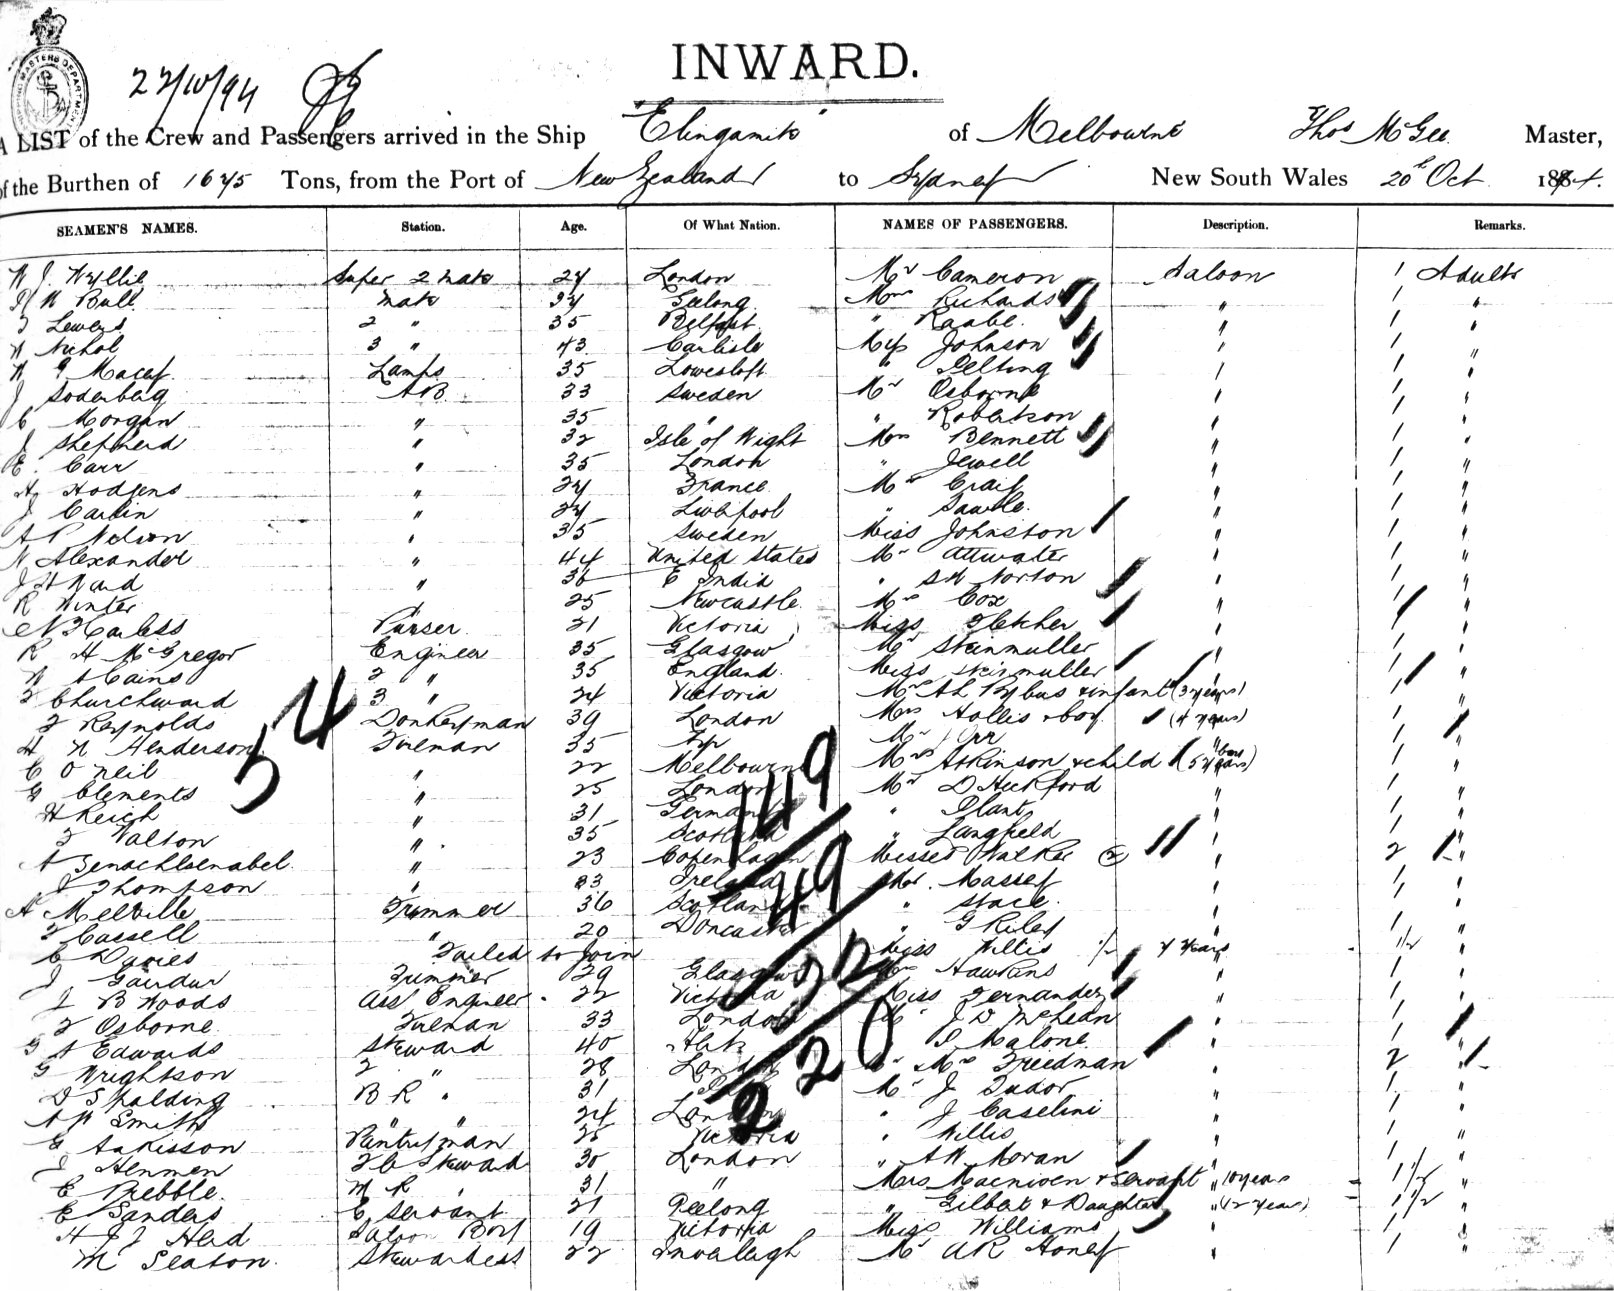 22/10/94
INWARD.
A LIST of the Crew and Passengers arrived in the Ship "Elingamite" of Melbourne Thos McGee Master,
of the Burthen of 1675 Tons, from the Port of New Zealand to Sydney New South Wales 20th Oct 1894.
SEAMEN'S NAMES. Station. Age. Of What Nation. NAMES OF PASSENGERS. Description. Remarks.
W J Wyllie Super 2 Mate 24 London Mr Cameron Saloon 1 Adults
W Bull Mate 34 Geelong Mrs Richards " 1 "
Lewers 2 " 35 Belfast " Raabe " 1
W Nichol 3 " 43 Carlisle Miss Johnson " 1 "
W G Macey Lamps 35 Lowestoft " Gelting " 1 "
J Soderberg AB 33 Sweden Mr Osborne " 1 "
C Morgan " 35 " " Robertson " 1 "
J Shepherd " 32 Isle of Wight Mrs Bennett " 1 "
E. Carr " 35 London " Jewell " 1 "
H Hodgens " 24 France Mr Craig " 1 "
J Carlin " 24 Liverpool " Sawle " 1 "
A P Nelson " 35 Sweden Miss Johnston " 1 "
N Alexander " 44 United States Mr Attwater " 1 "
J H Ward " 36 E India " S W Norton " 1 "
R Winter 25 Newcastle Mr Cox " 1 "
Purser 21 Victoria Miss Fletcher " 1 "
R H McGregor Engineer 35 Glasgow Mr Steinmuller " 1 "
W A Cains 2 " 35 England Miss Steinmuller " 1 "
F Churchward 3 " 24 Victoria Mrs A L Pybus & infant (3 years) 1 "
F Reynolds Donkeyman 39 London Mrs Hollis & boy (4 years) 1 "
H W Henderson Fireman 35 Mr Orr " 1 "
C O'Neil " 22 Melbourne Mrs Askinson & child (5 years) boy 1 "
G Clements " 25 London Mr D Heckford " 1 "
H Reich " 31 Germany " Plant " 1 "
F Walton " 35 Scotland " Langfield " 1 "
23 Copenhagen Misses Walker (2) " 2 "
J Thompson " 33 Ireland Mr. Massey " 1 "
A Melville Trimmer 36 Scotland " Stace " 1 "
F Cassell " 20 Doncaster " G Riley " 1 "
C Davies Failed to Join Miss Willis 1/2 4 years 1/2 "
J Gairdner Trimmer 29 Glasgow Mrs Hawkins " 1 "
J B Woods Asst Engineer 22 Victoria Miss Fernandez " 1 "
F Osborne Fireman 33 London Mr J D McLean " 1 "
G A Edwards Steward 40 " P Malone " 1 "
G Wrightson 2 " 28 London Mr & Mrs Freedman " 2 "
D Spalding B R " 31 Mr J Tudor " 1 "
A W Smith " " 24 London " J Caselini " 1 "
G Askisson Pantryman 25 Victoria " Willis " 1 "
J Henmen F C Steward 30 London " A W Moran " 1 "
C Prebble M R " 31 " Mrs Macniven & Servant " 10 years 1 1/2 "
E Sanders E Servant 21 Geelong " Gilbert & Daughter " (12 years) 1 1/2 "
H J J Head Saloon Boy 19 Victoria Miss Williams " 1 "
M Seaton Stewardess 22 Mr A R Honey " 1 "
54
149
49
22
220